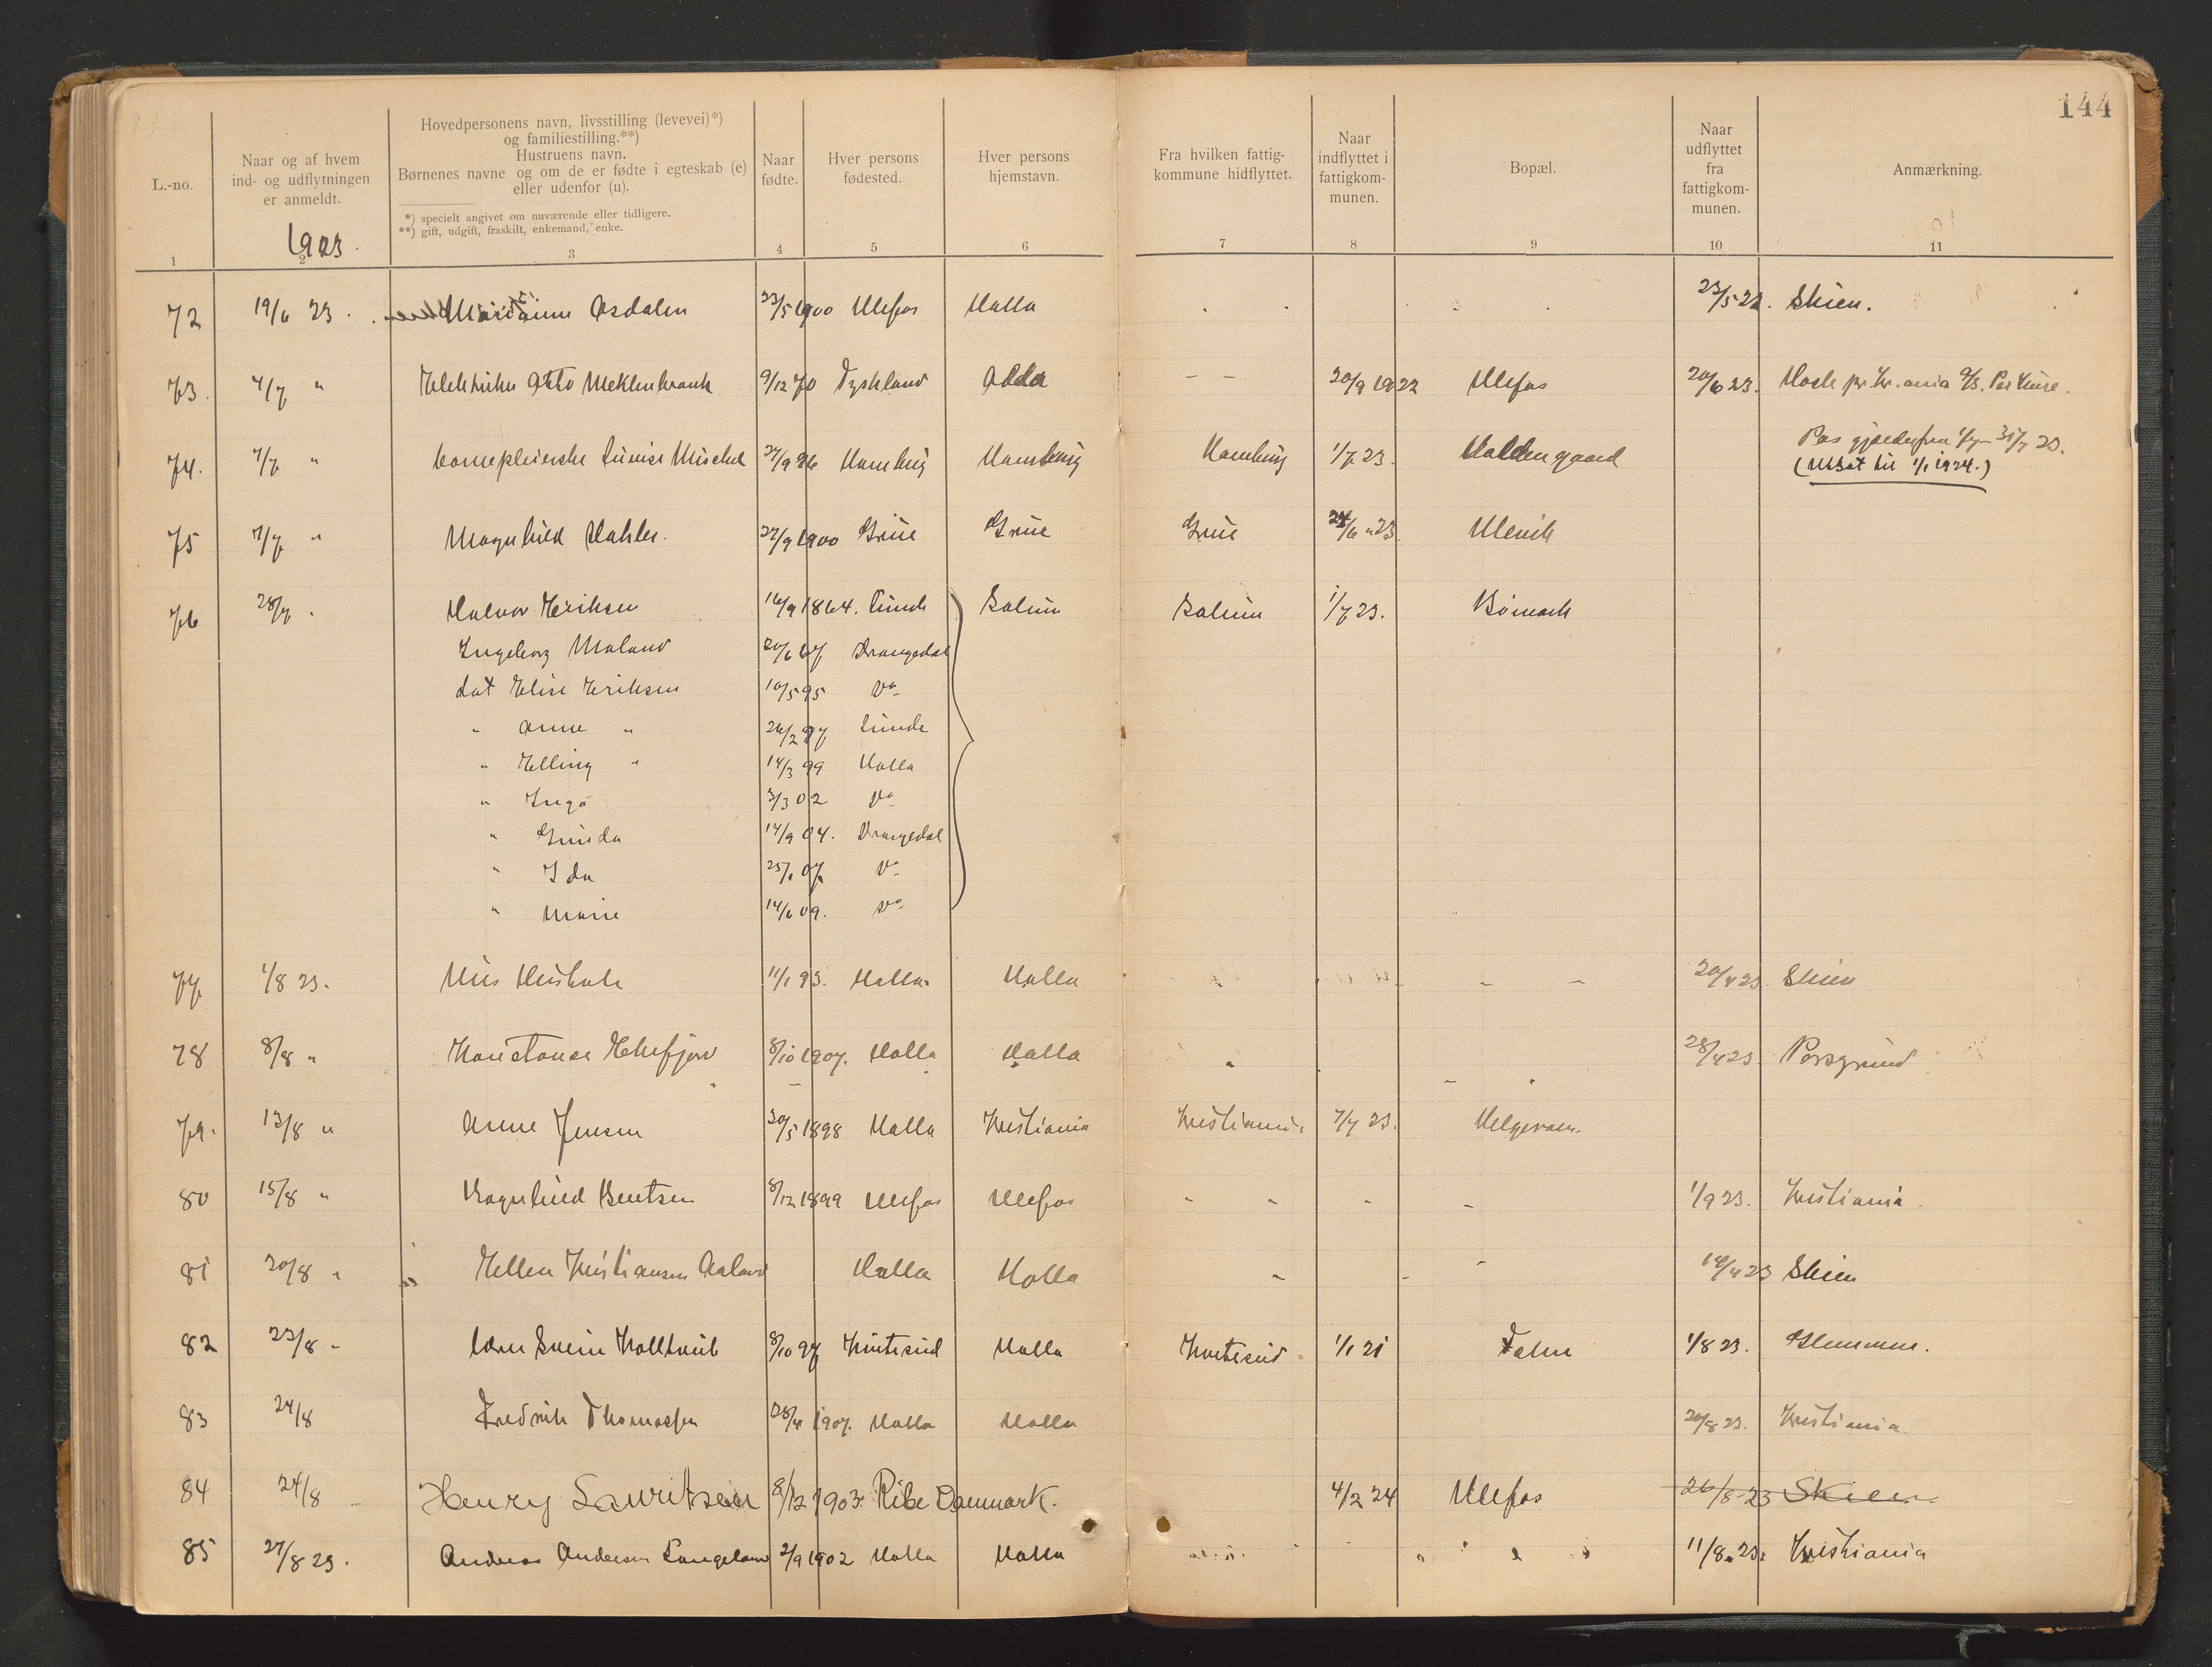 144
L.-no.
Naar og af hvem
ind- og udflytningen
er anmeldt.
Hovedpersonens navn, livsstilling (levevei)*)
og familiestilling.**)
Hustruens navn.
Børnenes navne og om de er fødte i egteskab (e)
eller udenfor (u).
*) specielt angivet om nuværende eller tidligere.
**) gift, udgift, fraskilt, enkemand, enke.
Naar
fødte.
Hver persons
fødested.
Hver persons
hjemstavn.
Fra hvilken fattig-
kommune hidflyttet.
Naar
indflyttet i
fattigkom-
munen.
Bopæl.
Naar
udflyttet
fra
fattigkom-
munen.
Anmærkning.
1923.
1 2 3 4 5 6 7 8 9 10 11
72 19/6 23. Asdalen 23/5 1900 Ulefos Holla 23/5 22. Skien.
73. 4/7 " Otto 9/12 70 Tyskland Odda - - 20/9 1922 Ulefos 20/6 23.
74. 7/7 " Hamburg Hamburg Hamburg 1/7 23. Holden gaard Pas 1/7-31/7 23.
(Utsat til 1/1 1924.)
75 7/7 " Magnhild 27/9 1900 Grue Grue Grue 23. Ulevik
76 28/7 " Halvor Eriksen 16/9 1864. Lunde Solum Solum 1/7 23.
Ingeborg Moland 20/6 67 Drangedal
dat Elise Eriksen 10/5 95 Do
" Anne " 26/2 97 Lunde
" Elling " 14/3 99 Holla
" Inga 3/3 02 Do
" Gunda 14/9 04. Drangedal
" Ida 25/1 07 Do
" Marie 14/6 09. Do
77 1/8 23. 11/1 93. Holla Holla 20/4 23 Skien
78 8/8 " 8/10 1907. Holla Holla 28/4 23 Porsgrund
79. 13/8 " Anne Jensen 30/5 1898 Holla Kristiania Kristiania 7/7 23. Helgeraen
80 15/8 " Ragnhild Bentsen 8/12 1899 Ulefos Ulefos 1/9 23. Kristiania.
81 20/8 " Ellen Kristiansen Aaland Holla Holla 23 Skien
82 23/8 " Svein 8/10 97 Kviteseid Holla Kviteseid 1/1 21 1/8 23. Glemmen.
83 24/8 Fredrik Thomassen 1907. Holla Holla 20/8 23. Kristiania.
84 24/8 Henry Lauritsen 8/12 1903. Ribe Danmark. 4/2 24 Ulefos 26/8-23 Skien
85 27/8 23. Andreas Andersen Langeland 2/9 1902 Holla Holla 11/8.23. Kristiania